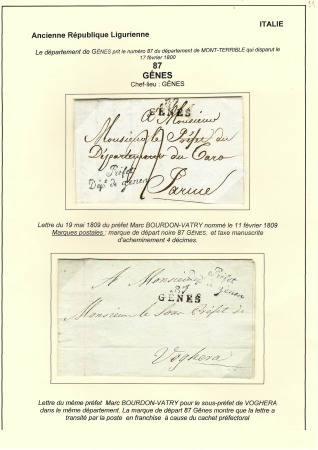 ITALIE
Ancienne République Ligurienne
Le département de GÊNES prit le numéro 87 du département de MONT-TERRIBLE qui disparut le
17 février 1800
87
GÊNES
Chef-lieu : GÊNES
GÊNES
A Monsieur
Monsieur le Préfet du
Département du Taro
Préfet
Dépt. de gènes
Parme
Lettre du 19 mai 1809 du préfet Marc BOURDON-VATRY nommé le 11 février 1809
Marques postales : marque de départ noire 87 GÊNES, et taxe manuscrite
d'acheminement 4 décimes.
A Monsieur
Préfet
87
gènes
GÊNES
Monsieur le Sous Préfet de
Voghera
Lettre du même préfet Marc BOURDON-VATRY pour le sous-préfet de VOGHERA
dans le même département. La marque de départ 87 Gênes montre que la lettre a
transité par la poste en franchise à cause du cachet préfectoral